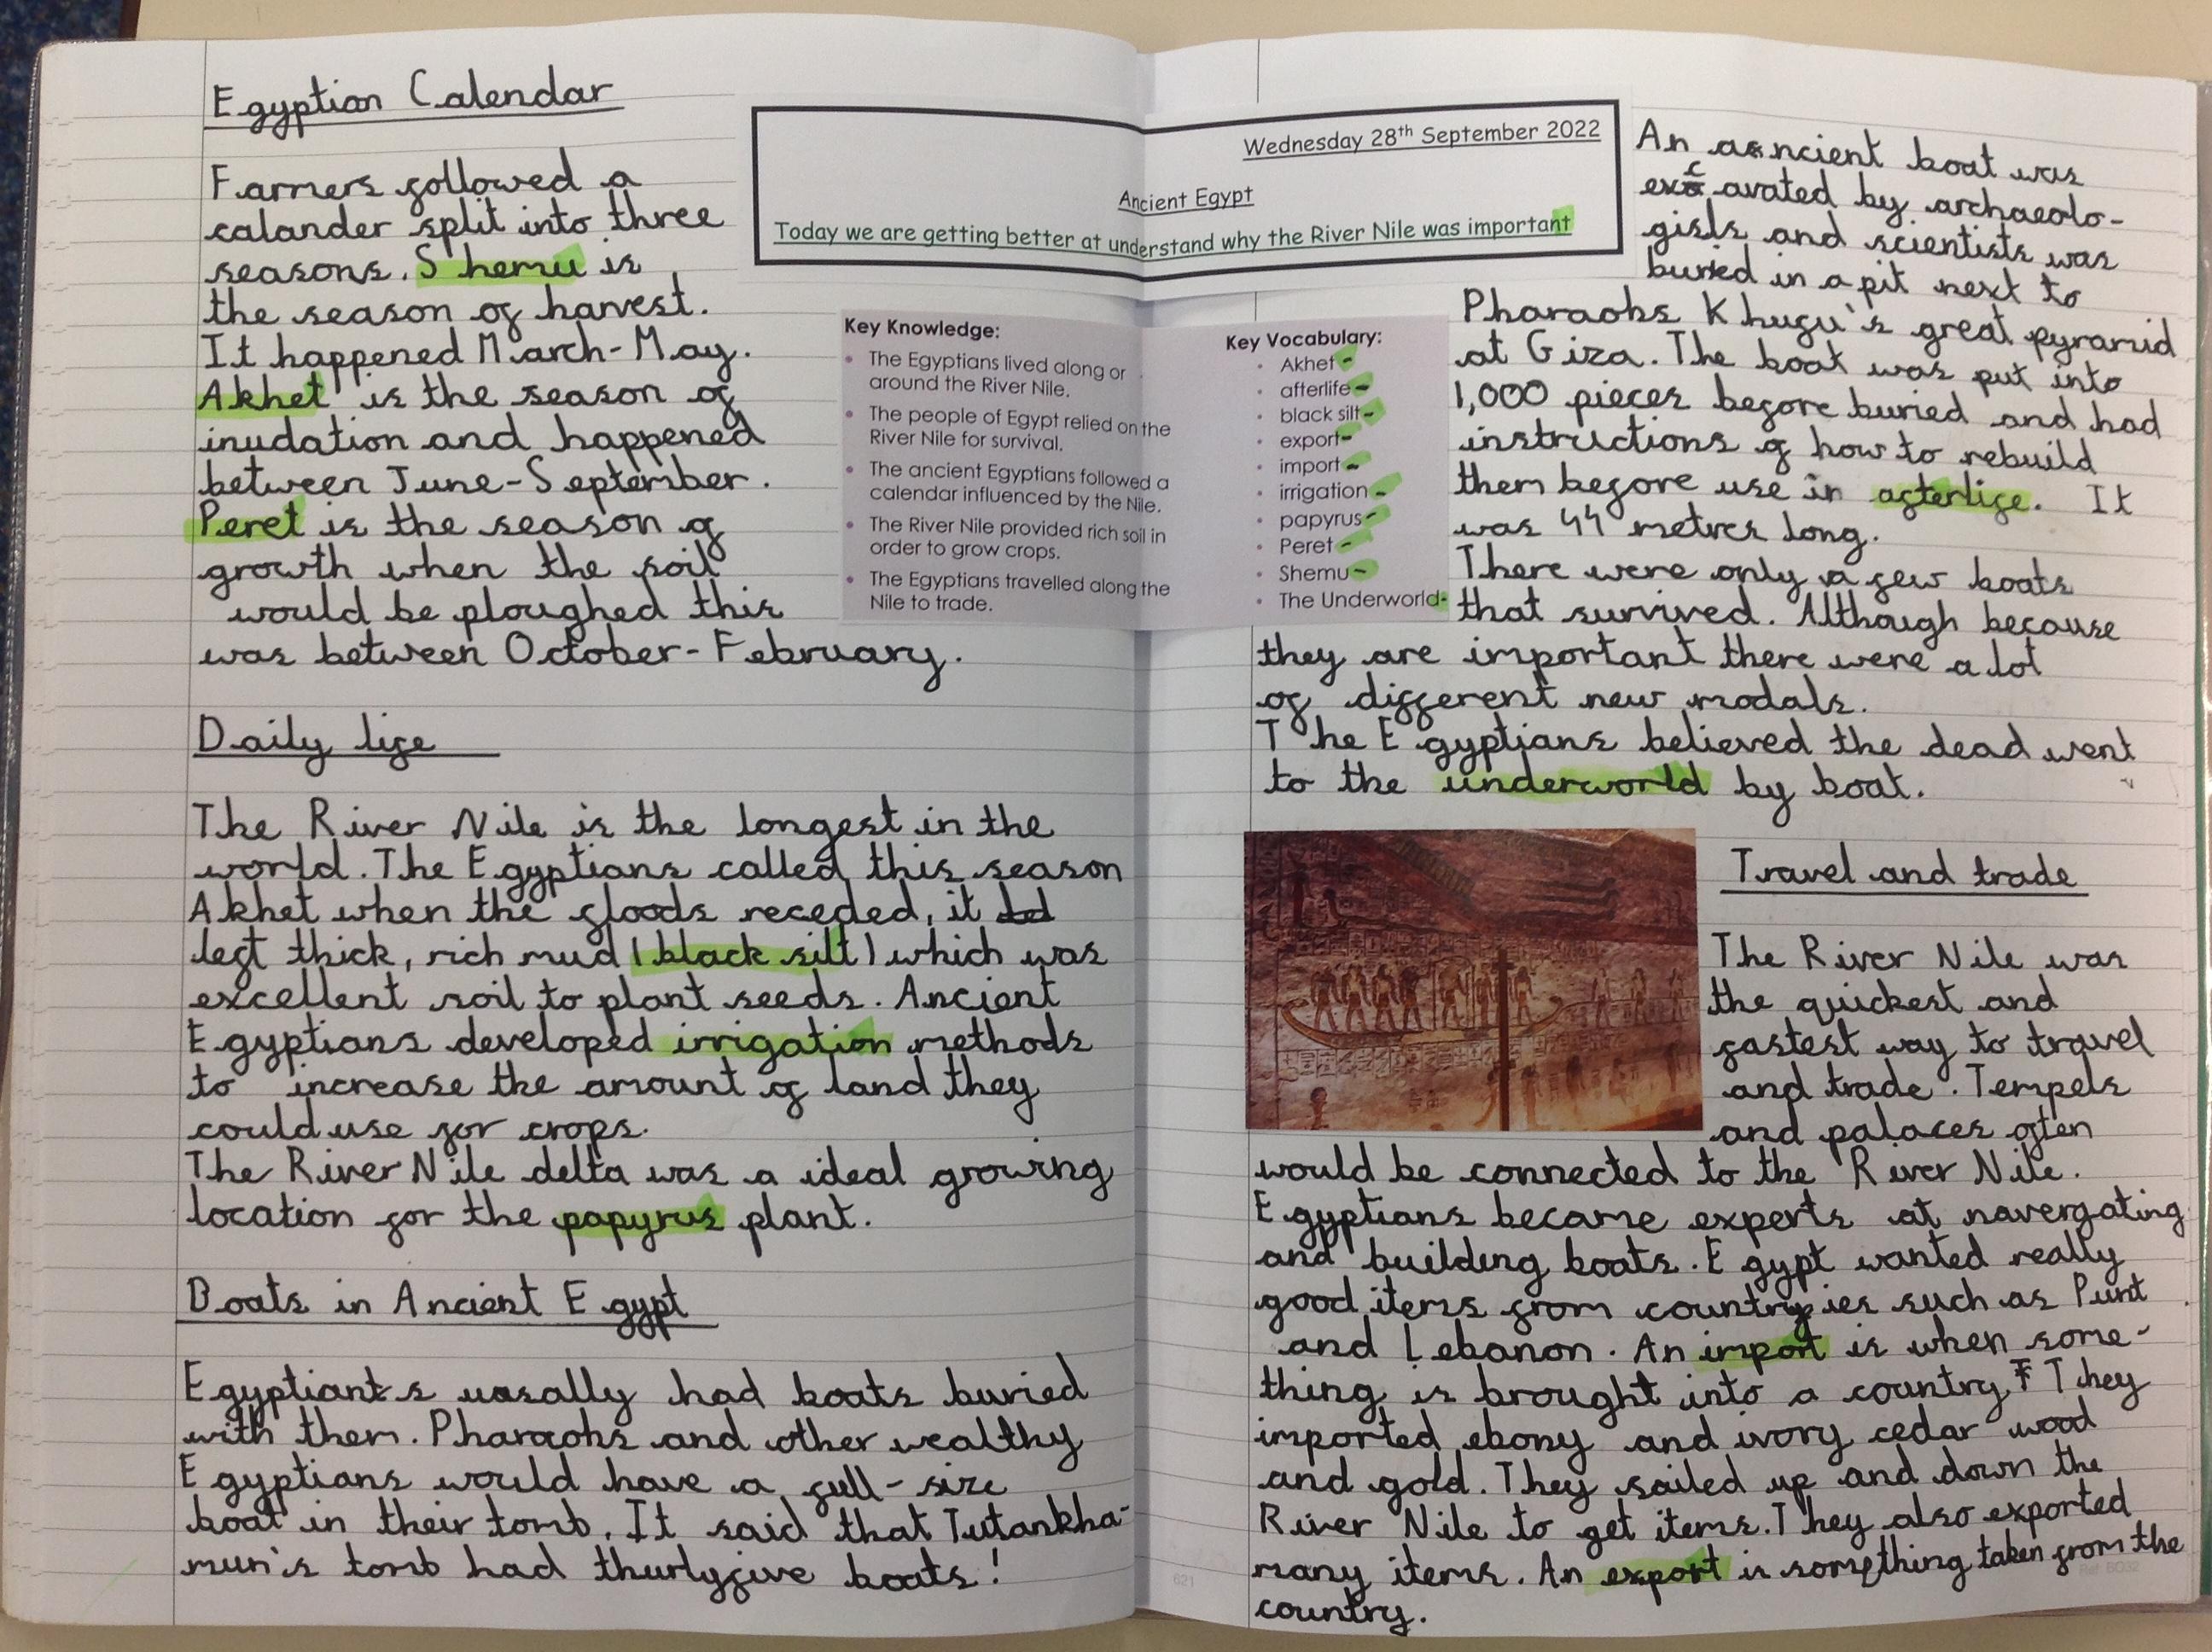 Egyption Calendar
Farmers followed a
calander split into three
seasons. Shemu is
the season of harvest.
It happened March-May.
Akhet is the season of
inudation and happened
between June-September.
Peret is the season of
growth when the soil
would be ploughed this
was between October-February.
Daily life
The River Nile is the longest in the
world. The Egyptians called this season
Akhet when the floods receded, it
left thick, rich mud (black silt) which was
excellent soil to plant seeds. Ancient
Egyptians developed irrigation methods
to increase the amount of land they
could use for crops.
The River Nile delta was a ideal growing
location for the papyrus plant.
Boats in Ancient Egypt
Egyptians uasally had boats buried
with them. Pharaohs and other wealthy
Egyptians would have a full-size
boat in their tomb. It said that Tutankha-
mun's tomb had thurtyfive boats!
Wednesday 28th September 2022
Ancient Egypt
Today we are getting better at understand why the River Nile was important
Key Knowledge:
• The Egyptians lived along or
around the River Nile.
• The people of Egypt relied on the
River Nile for survival.
• The ancient Egyptians followed a
calendar influenced by the Nile.
• The River Nile provided rich soil in
order to grow crops.
• The Egyptians travelled along the
Nile to trade.
Key Vocabulary:
• Akhet
• afterlife
• black silt
• export
• import
• irrigation
• papyrus
• Peret
• Shemu
• The Underworld
An ancient boat was
excavated by archaeolo-
gists and scientists was
buried in a pit next to
Pharaohs Khufu's great pyramid
at Giza. The boat was put into
1,000 pieces before buried and had
instructions of how to rebuild
them before use in afterlife. It
was 44 metres long.
There were only a few boats
that survived. Although because
they are important there were a lot
of different new modals.
The Egyptians believed the dead went
to the underworld by boat.
Travel and trade
The River Nile was
the quickest and
fastest way to travel
and trade. Tempels
and palaces often
would be connected to the River Nile.
Egyptians became experts at navergating
and building boats. Egypt wanted really
good items from countryies such as Punt
and Lebanon. An import is when some-
thing is brought into a country They
imported ebony and ivory cedar wood
and gold. They sailed up and down the
River Nile to get items. They also exported
many items. An export is something taken from the
country.
621